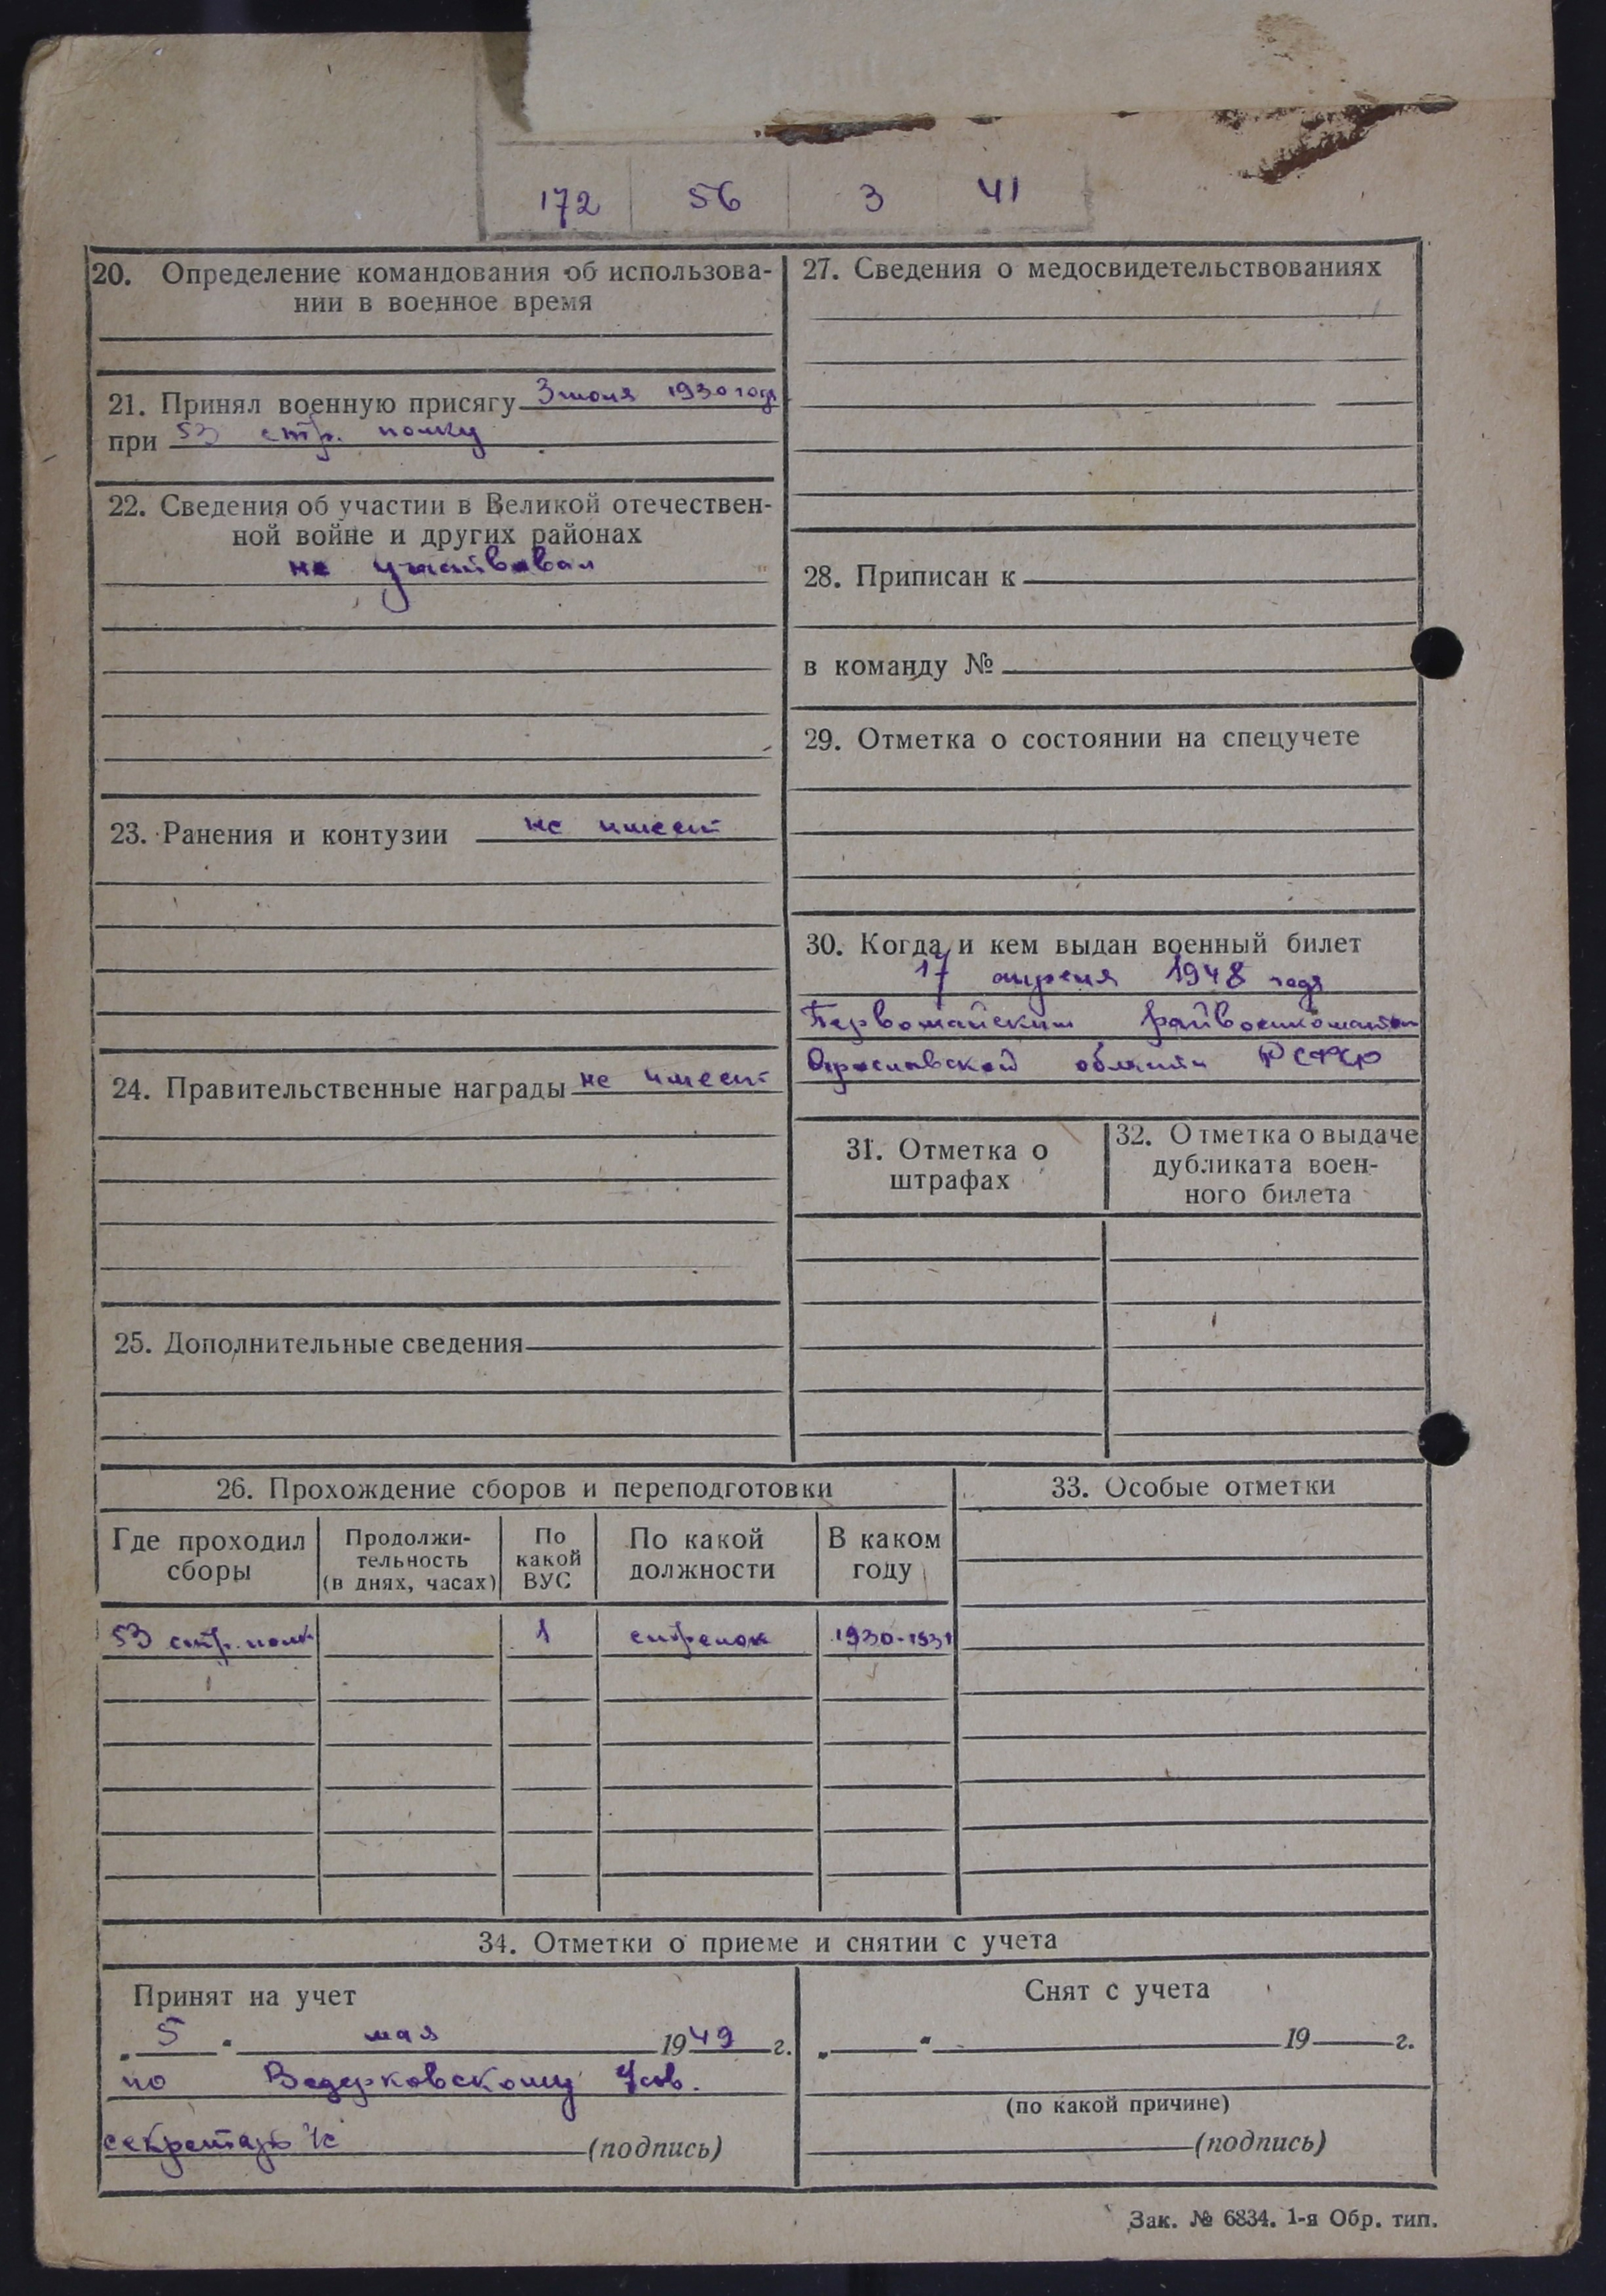 172 56 3 41
20. Определение командования об использова-
нии в военное время
21. Принял военную присягу 3 июля 1930 года
при 53 стр. полку
22. Сведения об участии в Великой отечествен-
ной войне и других районах
не участвовал
23. Ранения и контузии не имеет
24. Правительственные награды не имеет
25. Дополнительные сведения
27. Сведения о медосвидетельствованиях
28. Приписан к
в команду №
29. Отметка о состоянии на спецучете
30. Когда и кем выдан военный билет
17 апреля 1948 года
Первомайским райвоенкоматом
Ярославской области РСФСР
31. Отметка о
штрафах
32. Отметка о выдаче
дубликата воен-
ного билета
26. Прохождение сборов и переподготовки
Где проходил
сборы
Продолжи-
тельность
(в днях, часах)
По
какой
ВУС
По какой
должности
В каком
году
53 стр. полк 1 стрелок 1930-1931
33. Особые отметки
34. Отметки о приеме и снятии с учета
Принят на учет
„5“ мая 1949 г.
по Ведерковскому
секретарь
(подпись)
Снят с учета
„ “ 19 г.
(по какой причине)
(подпись)
Зак. № 6834. 1-я Обр. тип.